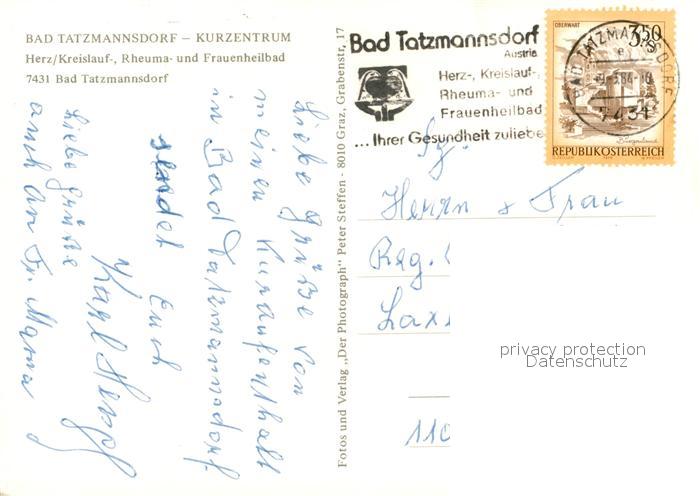 BAD TATZMANNSDORF – KURZENTRUM
Herz/Kreislauf-, Rheuma- und Frauenheilbad
7431 Bad Tatzmannsdorf
Liebe Grüße von
meinem Kuraufenthalt
in Bad Tatzmannsdorf
sendet Euch
Karl
Liebe Grüße
auch an Fr. Mama
Fotos und Verlag „Der Photograph" Peter Steffen - 8010 Graz, Grabenstr. 17
Bad Tatzmannsdorf
Austria
Herz-, Kreislauf-,
Rheuma- und
Frauenheilbad
...Ihrer Gesundheit zuliebe
BAD TATZMANNSDORF
7431
OBERWART
3.50
Burgenland
REPUBLIK ÖSTERREICH
Herrn + Frau
Reg.
Lax
110
privacy protection
Datenschutz